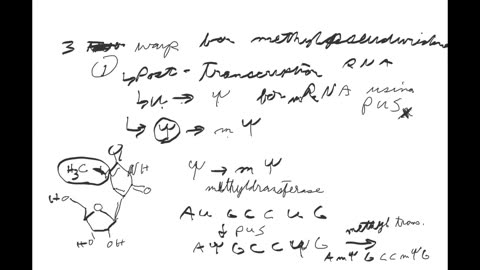 3 ways for methylpseudouridine
① ↳ Post-Transcription RNA
↳ U → Ψ for mRNA using PUS
↳ Ψ → m Ψ
O
H₃C NH
O
HO
O
HO OH
Ψ → m Ψ
methyltransferase
A U G C C U G
↓ PUS
A Ψ G C C Ψ G
methyl trans.
→
A mΨ G C C mΨ G